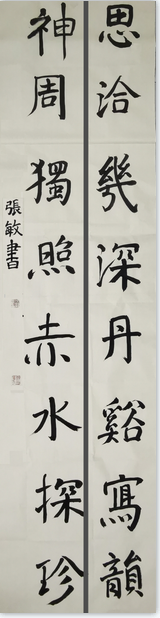 思洽幾深丹谿寫韻
神周獨照赤水探珍
張敏書